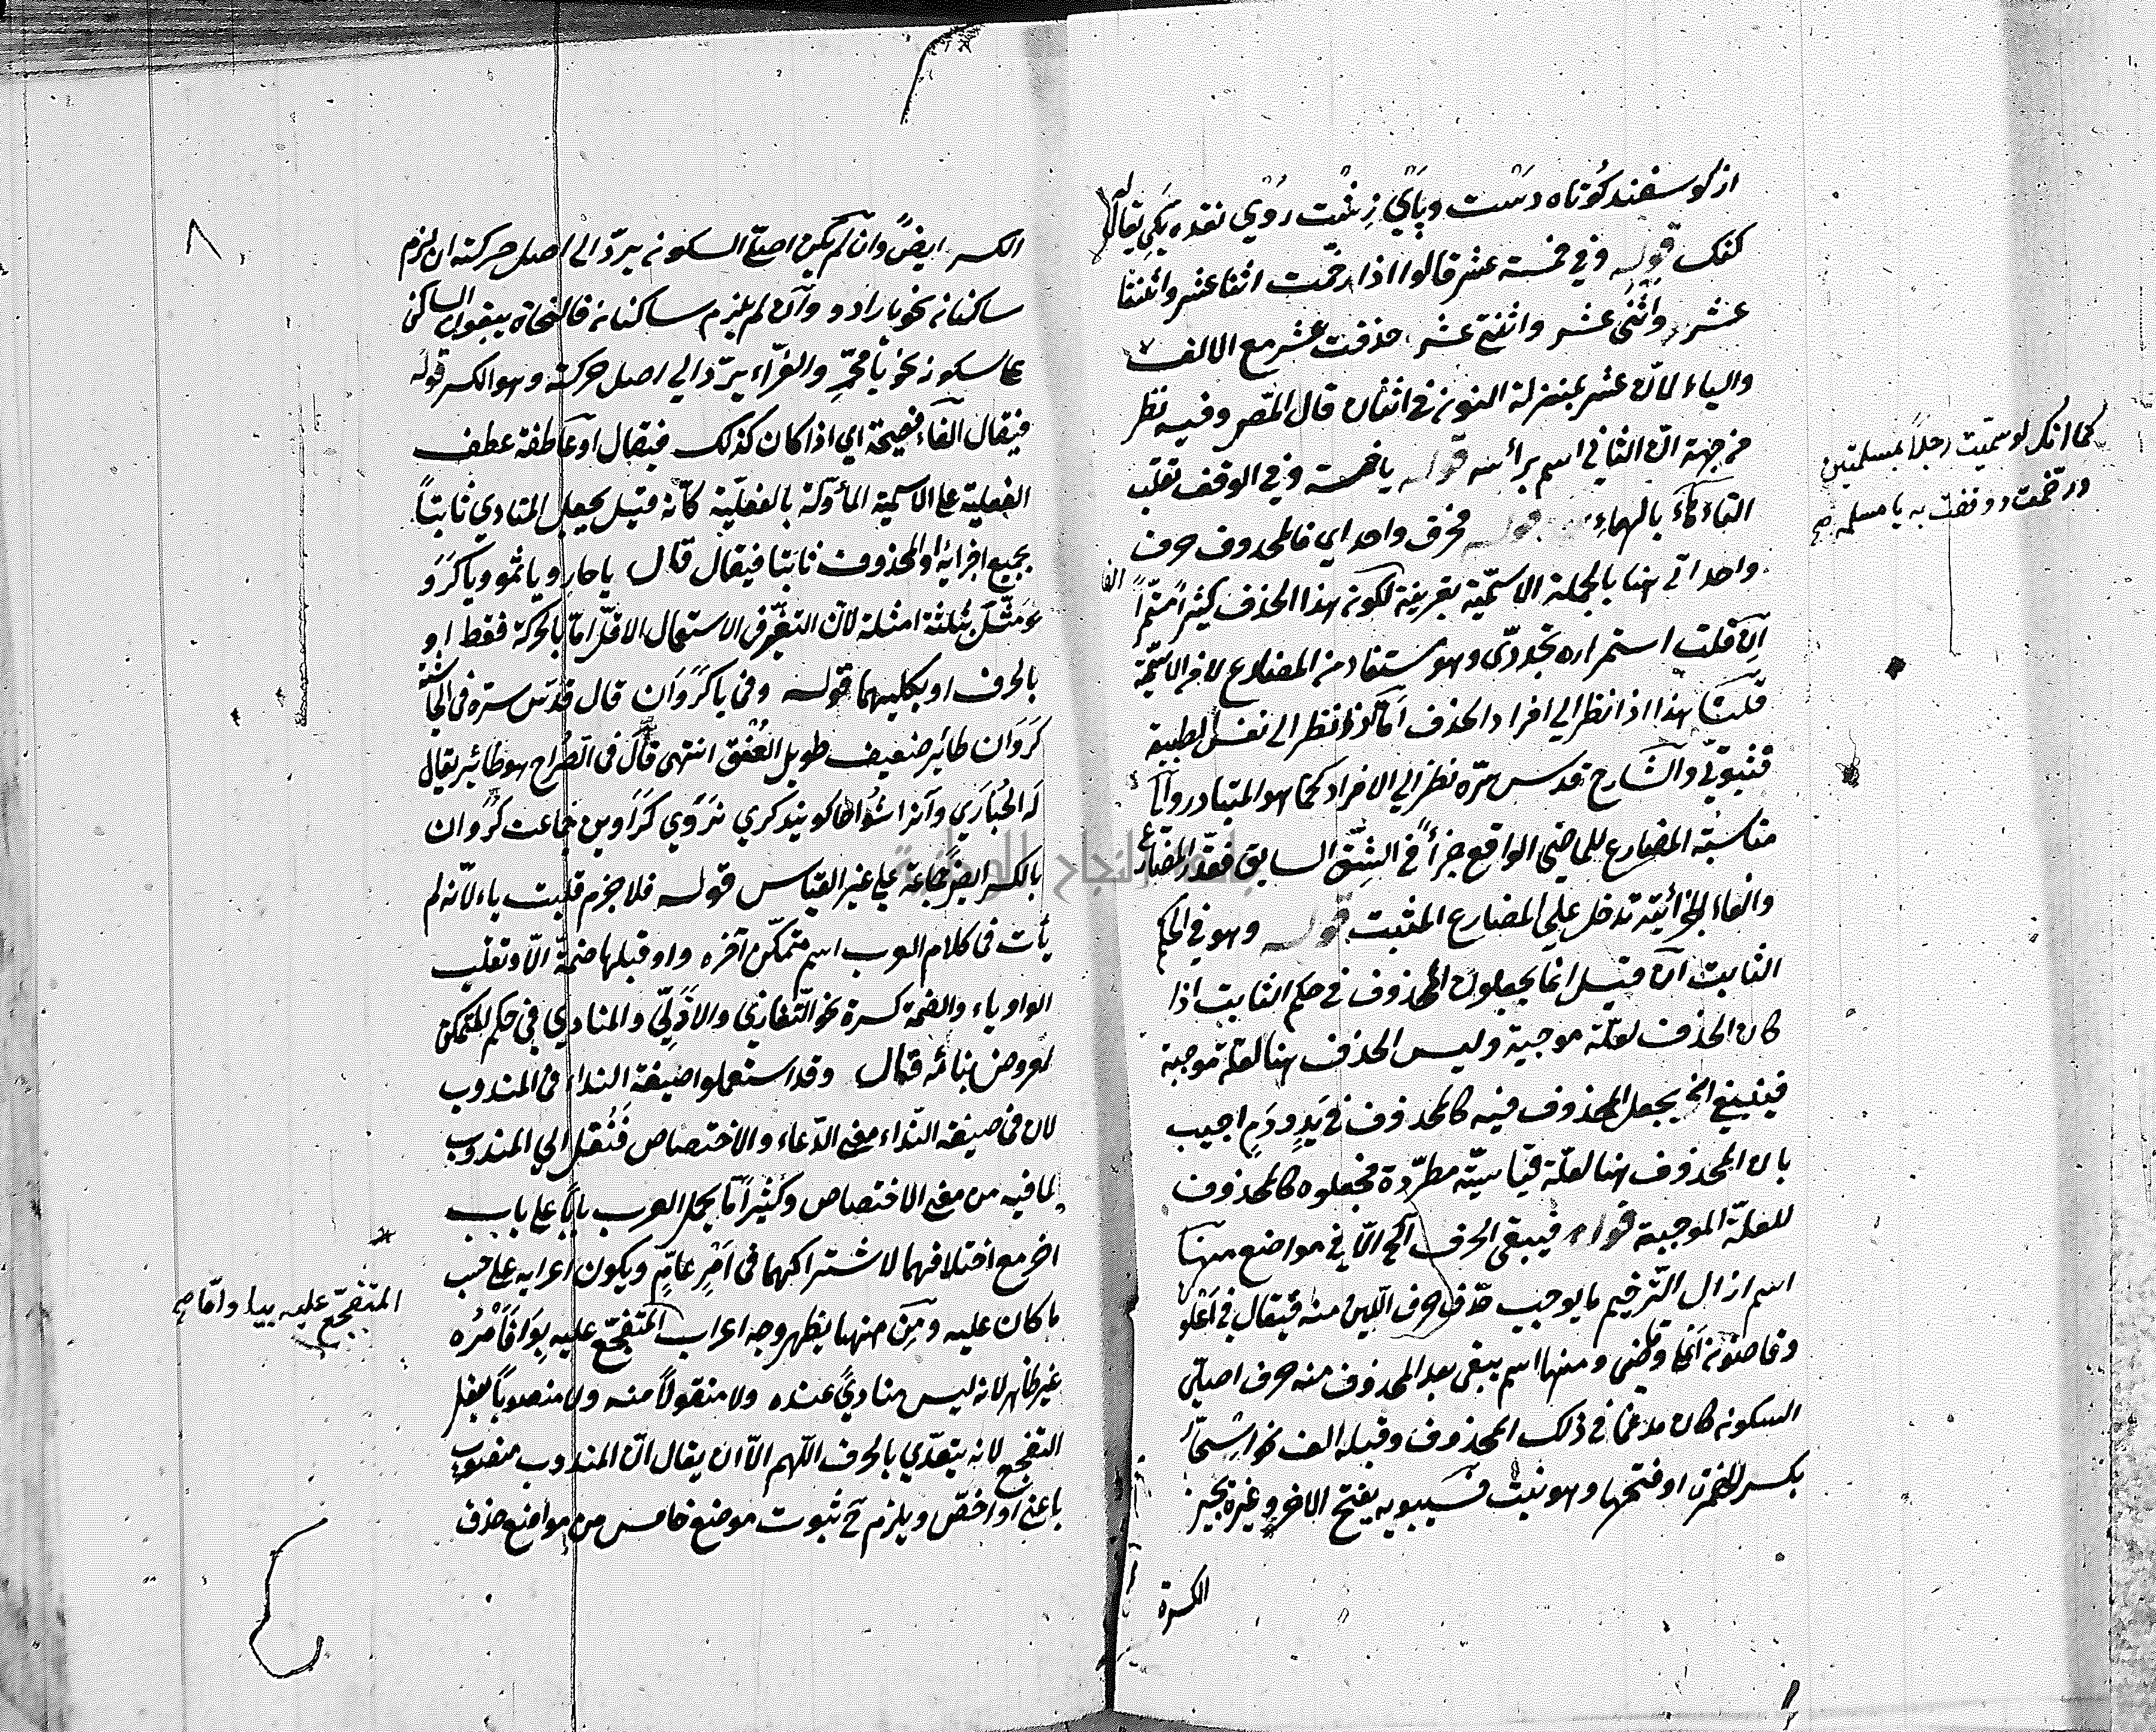 از كوسفند كُوتاه دَسْت وپَاْيْ زِشْت رُوْي نقده يَكي يقال له
كنك قوله وفي خمسة عشر قالوا اذا رخّمت اثنا عشر واثنتا
عشر واثنَى عشر واثنتي عشر حذفت عشر مع الالف
والياء لانّ عشر بمنزلة النون في اثنان قال المص وفيه نظر
من جهة انّ الثاني اسم برأسه قوله يا خمسة وفي الوقف تقلب
التاء بالهاء قوله فحرف واحد اي فالمحذوف حرف
واحد اتى هنا بالجملة الاسميّة بقرينة لكون هذا الحذف كثيراً
ان قلت استمراره تجدديّ وهو مستفاد من المضارع لا من الاسميّة
قلت هذا اذا نظر الى افراد الحذف امّا اذا نظر الى نفس الطبيعة
فثبوتيّ والشارح قدس سرّه نظر الى الافراد كما هو المتبادر وامّا
مناسبة المضارع للماضي الواقع جزأً في الشق السابق فقدّر المضارع
والفاء الجزائية تدخل على المضارع المثبت قوله وهو في حكم
الثابت ان قيل انما يجعلون المحذوف في حكم الثابت اذا
كان الحذف لعلّة موجبة وليس الحذف هنا لعلة موجبة
فينبغي ان يجعل المحذوف فيه كالمحذوف في يَدٍ ودَمٍ اجيب
بان المحذوف هنا لعلّة قياسيّة مطرّدة فجعلوه كالمحذوف
للعلّة الموجبة قوله فيبقى الحرف الخ الّا في مواضع منها
اسم ازال الترخيم ما يوجب حذف حرف اللين منه فيقال في اَعْلَو
ومنها اسم يبقى بعد المحذوف منه حرف اصليّ
السكون كان مدغما في ذلك المحذوف وقبله الف نحو اسْحَارّ
بكسر الهمزة او فتحها وهو نبت فسيبويه بفتح الاخر وغيره يجيز
الكسرة
كما انك لو سمّيت رجلاً بمسلمتين
ورخّمت ووقفت به يا مسلمه صح
الكسر ايضً وان لم يكن اصليّ السكون يردّ الى اصل حركته ان لزم
ساكنان نحو يا رادد وان لم يلزم ساكنان فالنحاة يبقون الساكن
على سكونه نحو يا مُحمرّ والفرّاء يردّ الى اصل حركته وهو الكسر قوله
فيقال الفاء فصيحة اي اذا كان كذلك فيقال او عاطفة عطف
الفعلية على الاسمية المأولة بالفعليّة كأنّه قيل يجعل المنادي ثابتاً
بجميع اجزائه او المحذوف ثابتا فيقال قال يا حارِ ويا ثمو ويا كَرَوَ
ومَثّلَ بثلثة امثلة لانّ التغيّر في الاستعمال الاقلّ امّا بالحركة فقط او
بالحرف او بكليهما قوله وفي يا كَرَوَان قال قدّس سرّه في الحاشية
كَرَوَان طائر ضعيف طويل العُنْق انتهى قال في الصُراح هو طائر يقال
له الحُبَارَي وآنرا شُواط كويند كري نرَوَي كَرَاوين جماعت كَرَوان
بالكسر ايضً جماعة على غير القياس قوله فلا جرم قلبت ياء لانّه لم
يأت في كلام العرب اسم متمكّن آخره واو قبلها ضمّة الّا وتقلب
الواو ياء والضمة كسرة نحو التّغازِي والاَدْلِي والمنادي في حكم المتمكن
لعروض بنائه قال وقد استعملوا صيغة النداء في المندوب
لان في صيغة النّداء معنى الدّعاء والاختصاص فَنُقل الى المندوب
لما فيه من معنى الاختصاص وكثيراً ما يحمل العرب باباً على باب
اخر مع اختلافهما لاشتراكهما في اَمْرٍ عامٍّ ويكون اعرابه على حسب
ما كان عليه ومن منهنا يظهر وجه اعراب المتفجّع عليه بِوَا فَاَمْرُه
غير ظاهر لانه ليس مناديً عنده ولا منقولاً منه ولا منصوباً بفعل
التفجع لانه يتعدّي بالحرف اللّهم الّا ان يقال انّ المندوب منصوب
باعني او اخصّ ويلزم ح ثبوت موضع خامس من مواضع حذف
المتفجّع عليه بيا وامّا صح